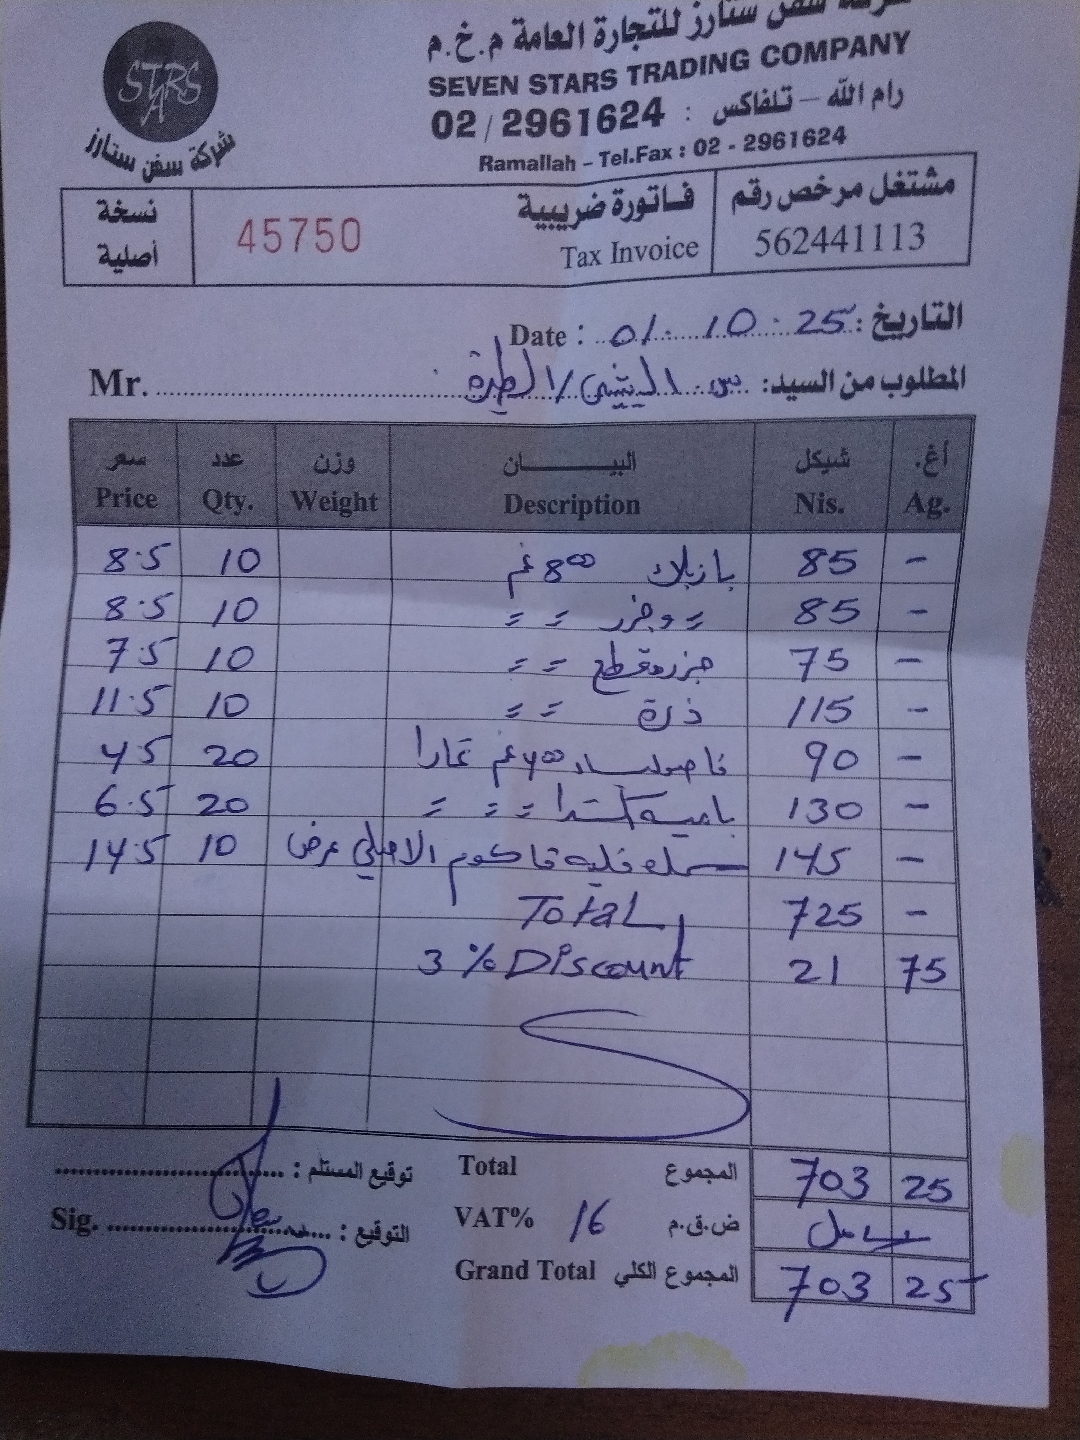 شركة سفن ستارز للتجارة العامة م.خ.م
SEVEN STARS TRADING COMPANY
رام الله - تلفاكس : 02 / 2961624
Ramallah - Tel.Fax : 02 - 2961624
STARS
شركة سفن ستارز
مشتغل مرخص رقم 562441113
فاتورة ضريبية 45750
Tax Invoice
نسخة أصلية
Date : 01 . 10 . 25 : التاريخ
Mr. المطلوب من السيد:
سعر عدد وزن البيـــــــان شيكل أغ.
Price Qty. Weight Description Nis. Ag.
8.5 10 بازيلاء 800 غم 85 -
8.5 10 = وجزر = = 85 -
7.5 10 جزر مقطع = = 75 -
11.5 10 ذرة = = 115 -
4.5 20 400 غم 90 -
6.5 20 بامية اكسترا = = = 130 -
14.5 10 145 -
Total 725 -
3 % Discount 21 75
توقيع المستلم :
Total المجموع 703 25
Sig. التوقيع :
VAT% 16 ض.ق.م
Grand Total المجموع الكلي 703 25